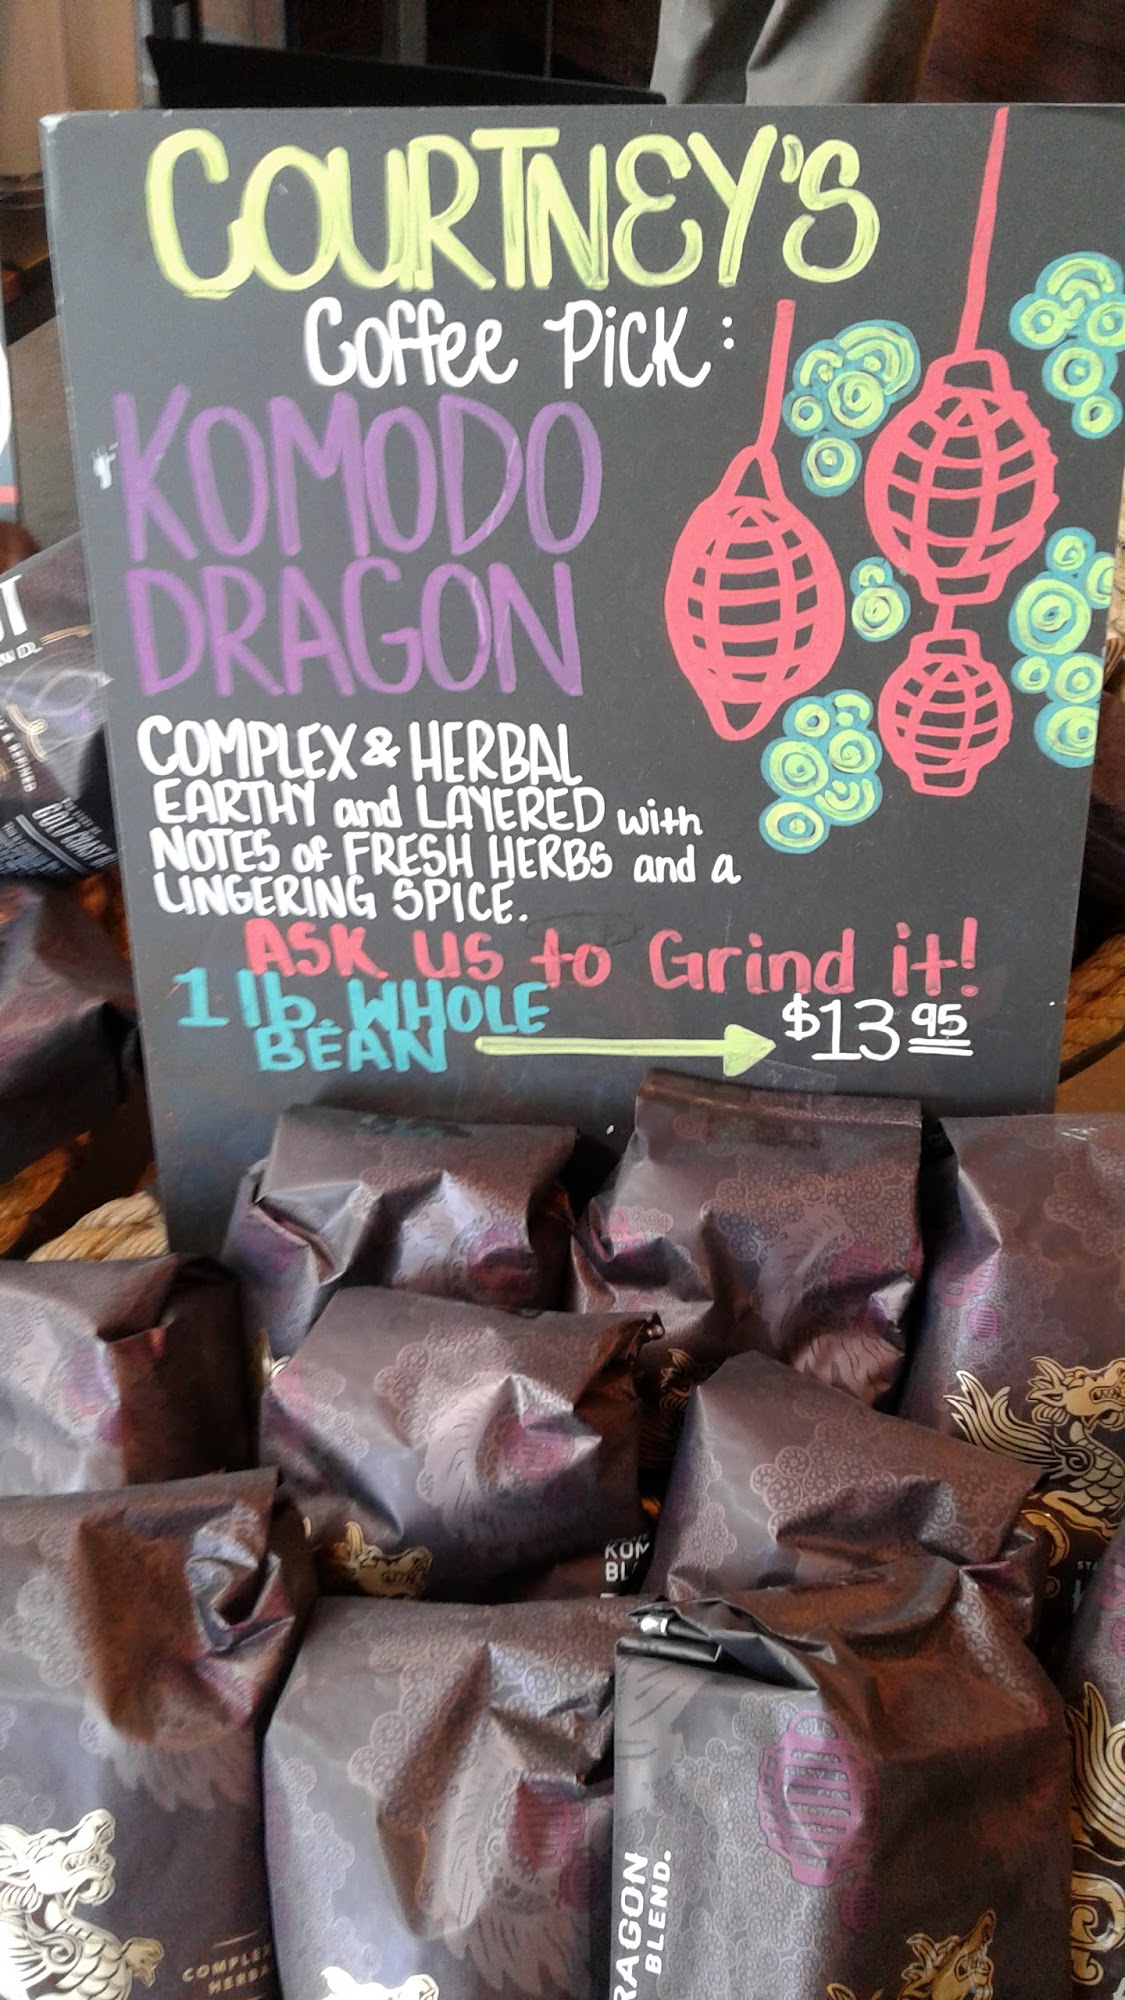 COURTNEY'S
Coffee PICK:
KOMODO
DRAGON
COMPLEX & HERBAL
EARTHY and LAYERED with
NOTES of FRESH HERBS and a
LINGERING SPICE.
ASK US to Grind it!
1 lb. WHOLE
BEAN
$13.95
KOM
BL
RAGON
BLEND.
COMPLEX
HERBA